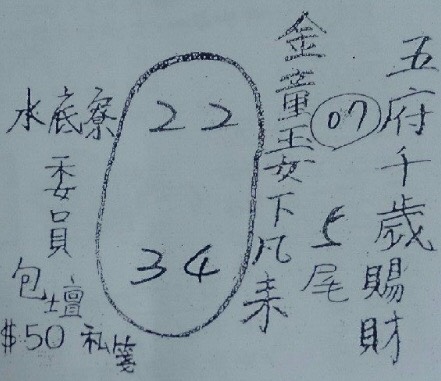 五府千歲賜財
07
5尾
金童玉女下凡来
22
34
水底寮
委員
包壇
$50 私箋